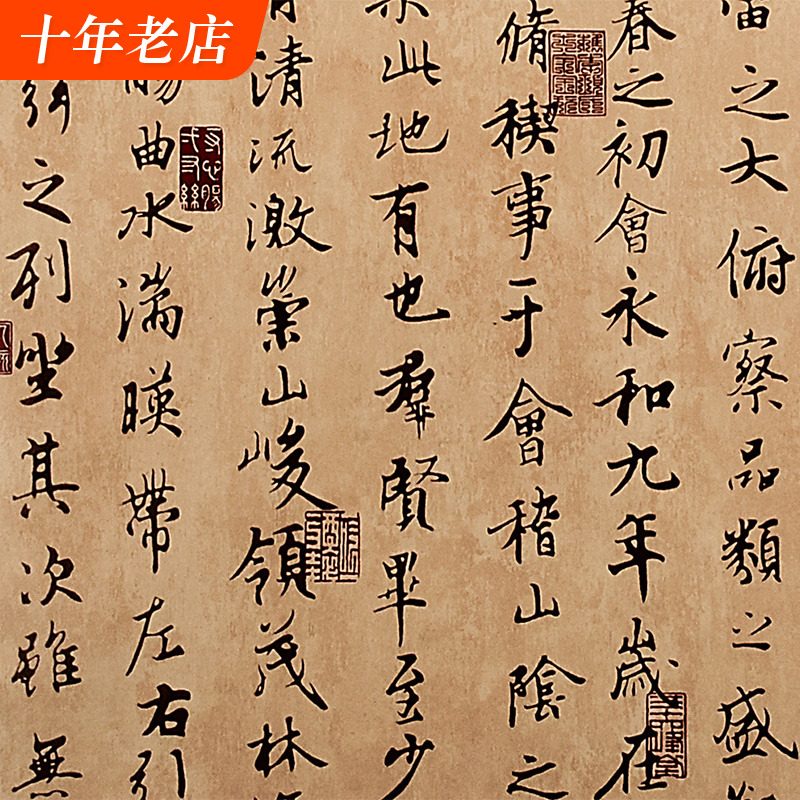 十年老店
之大俯察品類之盛
春之初會永和九年歲在
脩稧事于會稽山陰之
此地有也羣賢畢至少
清流激崇山峻領茂林
曲水湍暎帶左右引
之列坐其次雖無